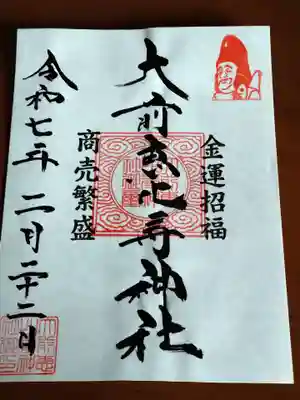 金運招福
大前恵比寿神社
商売繁盛
令和七年二月二十二日